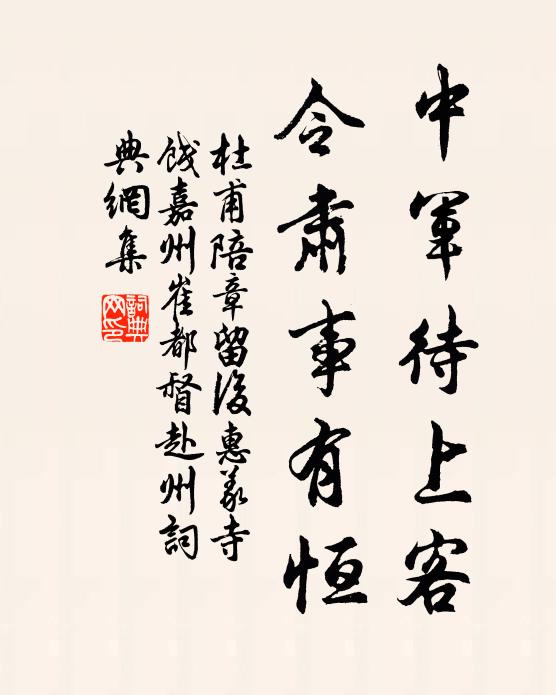 中軍待上客
令肅事有恒
杜甫陪章留後惠義寺
餞嘉州崔都督赴州詞
典網集
詞典
网印